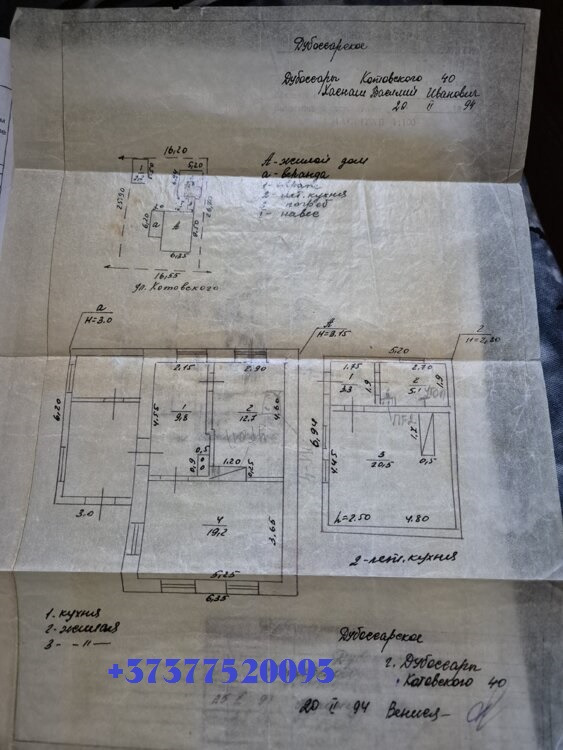 Дубоссарское
Дубоссары Котовского 40
Хаснаш Василий Иванович
20 II 94
16,20
А - жилой дом
а - веранда
2 - лет. кухня
погреб
навес
5,20
25,90
6,20
А
6,35
16,55
ул. Котовского
а
H=3.0
А
H=3.15
2
H=2,30
5,20
2,15
2,90
1,75
2,70
1
3.3
1,9
2
5,1
1,9
6,20
4,55
1
9,8
2
12,7
4,60
6,94
4.45
3
20,5
1,2
0,5
0,5
0,9
1.20
3.0
4
19,2
3,65
h=2.50
4.80
5,25
6,35
2-лет. кухня
1. кухня
2 - жилая
3 - -"-
Дубоссарское
г. Дубоссары
Котовского 40
20 II 94
+37377520093